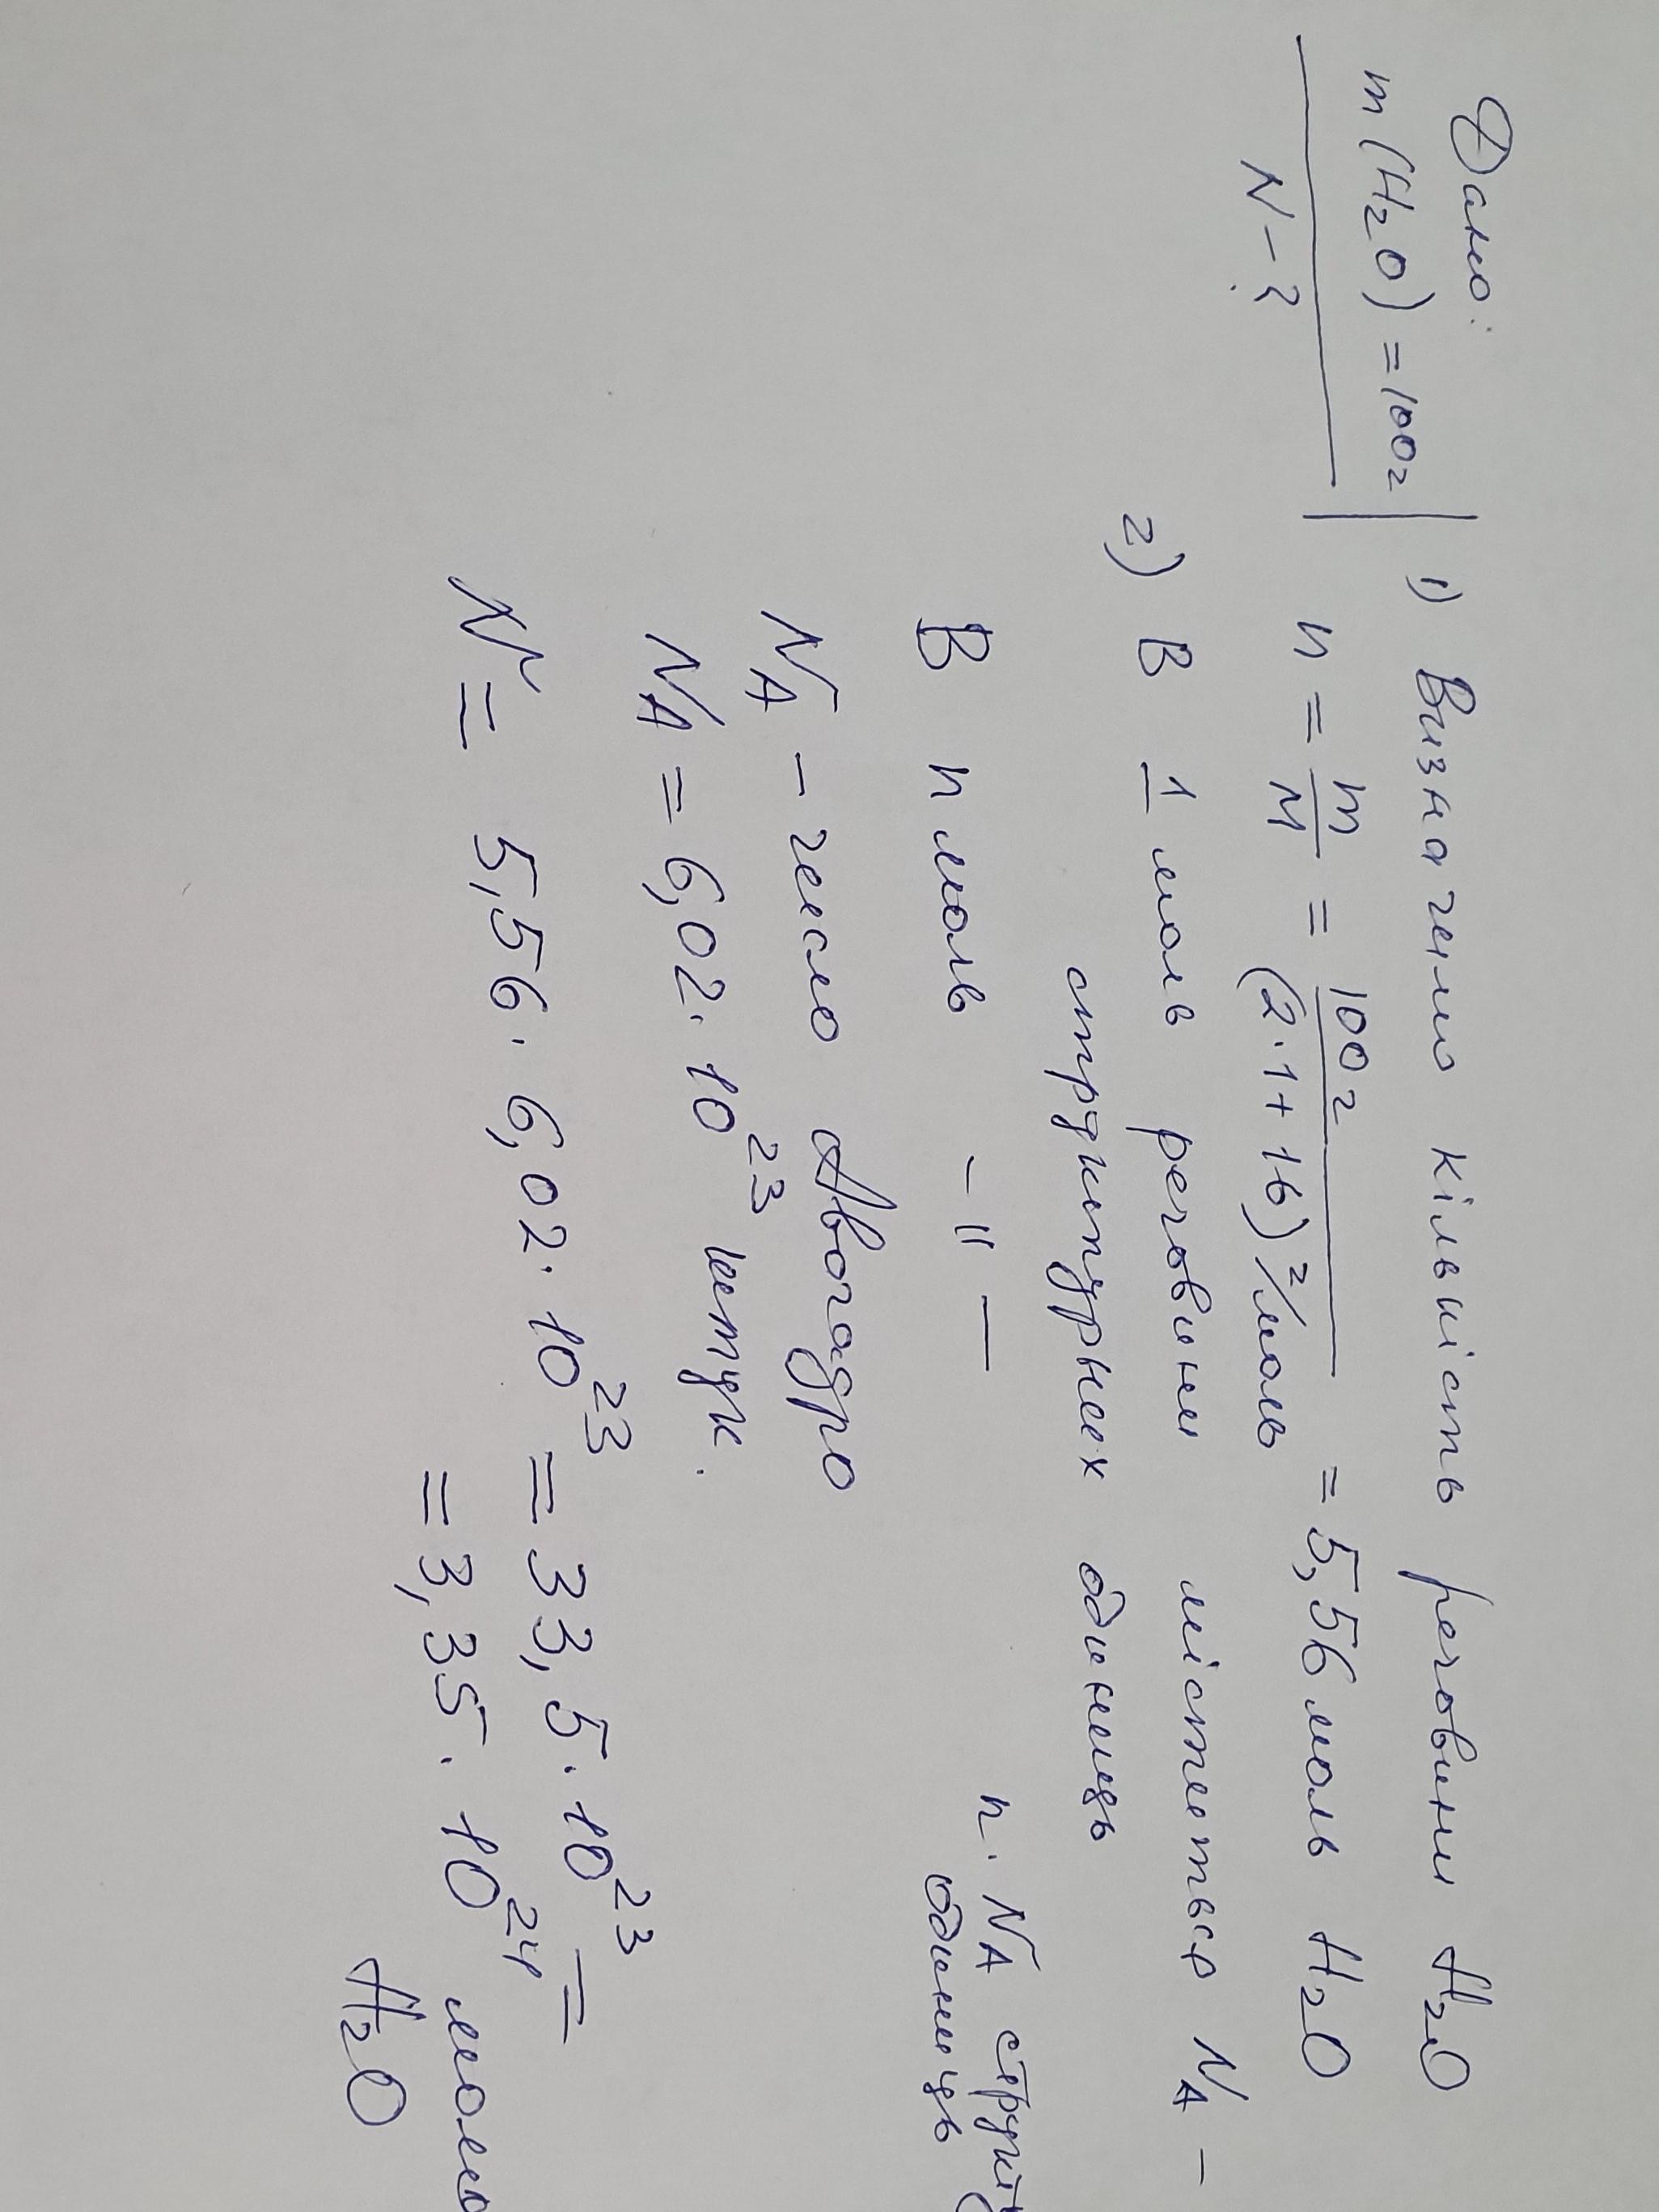 Дано:
m (H₂O) = 100г
N - ?
1) Визначимо кількість речовини H₂O
n = m/M = 100г/(2·1+16) г/моль = 5,56 моль H₂O
2) В 1 моль речовини міститься N_A -
структурних одиниць
В n моль - " - n · N_A структ
одиниць
N_A - число Авогадро
N_A = 6,02 · 10²³ штук.
N = 5,56 · 6,02 · 10²³ = 33,5 · 10²³ =
= 3,35 · 10²⁴ моле
H₂O